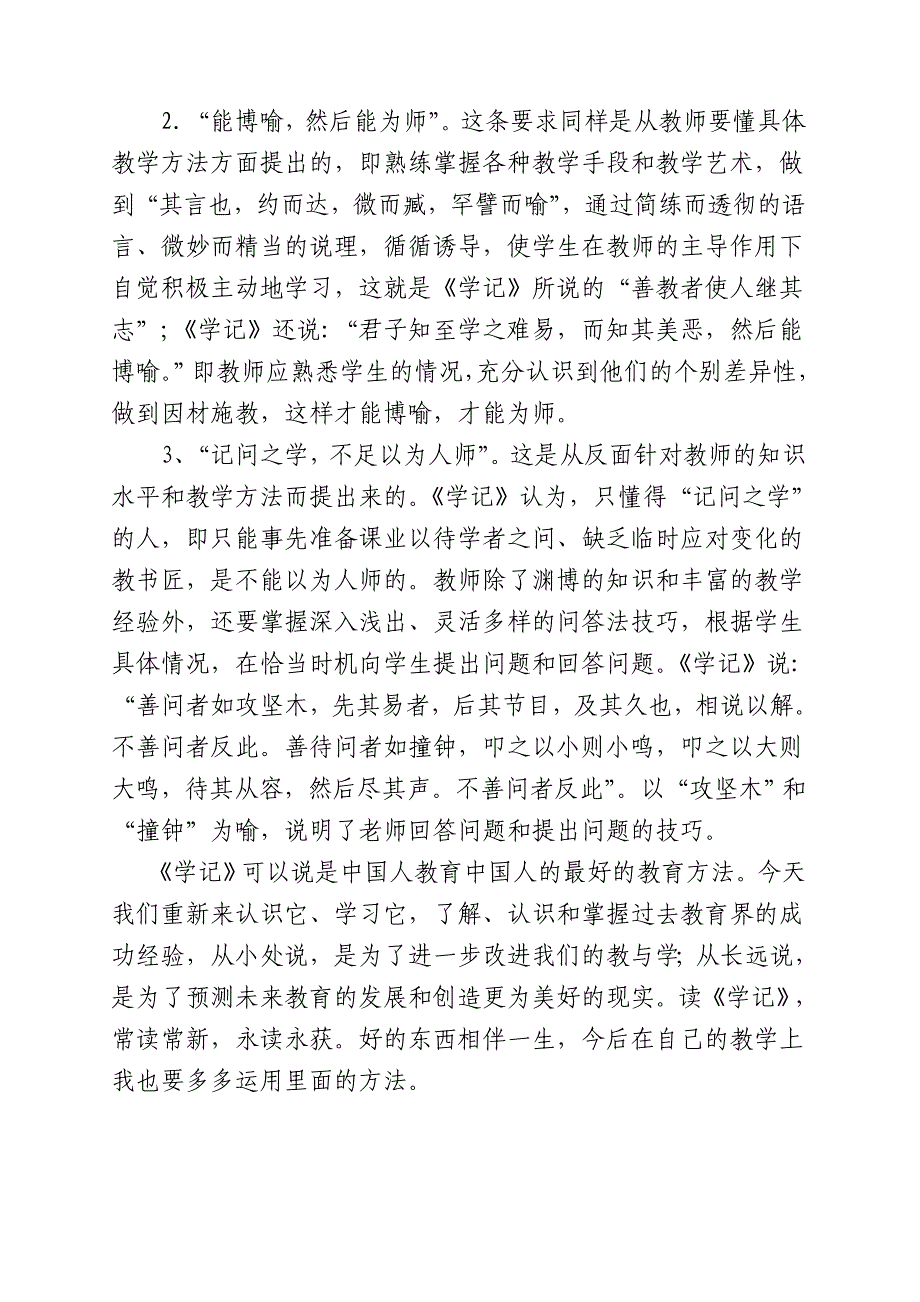 2．“能博喻，然后能为师”。这条要求同样是从教师要懂具体
教学方法方面提出的，即熟练掌握各种教学手段和教学艺术，做
到“其言也，约而达，微而臧，罕譬而喻”，通过简练而透彻的语
言、微妙而精当的说理，循循诱导，使学生在教师的主导作用下
自觉积极主动地学习，这就是《学记》所说的“善教者使人继其
志”；《学记》还说：“君子知至学之难易，而知其美恶，然后能
博喻。”即教师应熟悉学生的情况，充分认识到他们的个别差异性，
做到因材施教，这样才能博喻，才能为师。
3、“记问之学，不足以为人师”。这是从反面针对教师的知识
水平和教学方法而提出来的。《学记》认为，只懂得“记问之学”
的人，即只能事先准备课业以待学者之问、缺乏临时应对变化的
教书匠，是不能以为人师的。教师除了渊博的知识和丰富的教学
经验外，还要掌握深入浅出、灵活多样的问答法技巧，根据学生
具体情况，在恰当时机向学生提出问题和回答问题。《学记》说：
“善问者如攻坚木，先其易者，后其节目，及其久也，相说以解。
不善问者反此。善待问者如撞钟，叩之以小则小鸣，叩之以大则
大鸣，待其从容，然后尽其声。不善问者反此”。以“攻坚木”和
“撞钟”为喻，说明了老师回答问题和提出问题的技巧。
《学记》可以说是中国人教育中国人的最好的教育方法。今天
我们重新来认识它、学习它，了解、认识和掌握过去教育界的成
功经验，从小处说，是为了进一步改进我们的教与学；从长远说，
是为了预测未来教育的发展和创造更为美好的现实。读《学记》，
常读常新，永读永获。好的东西相伴一生，今后在自己的教学上
我也要多多运用里面的方法。